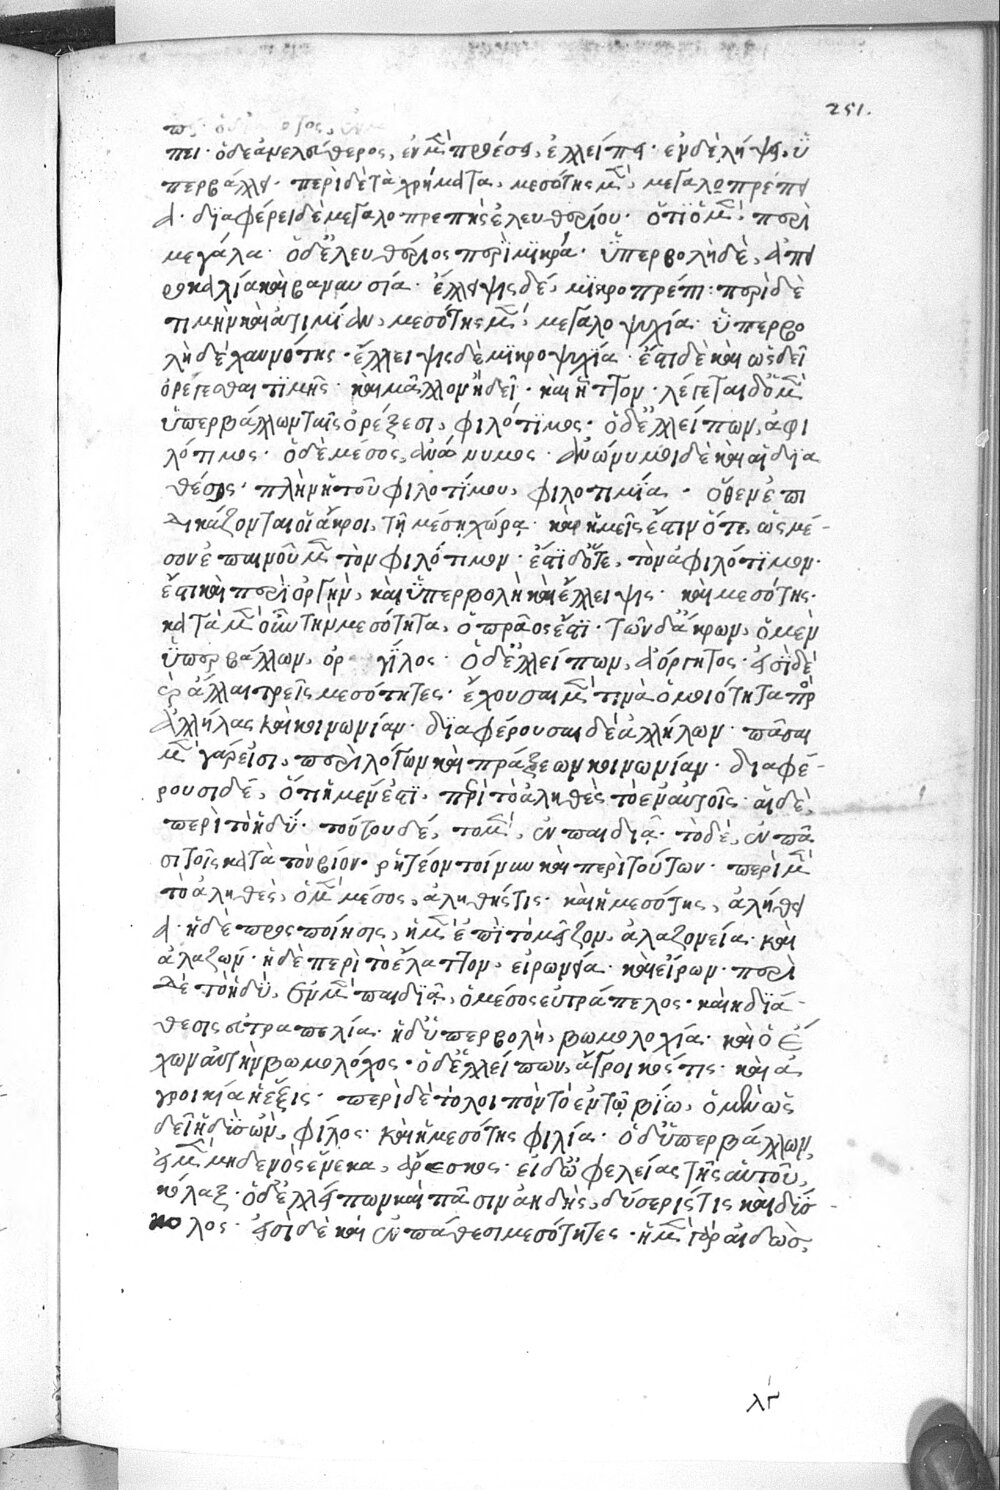 251.
πει· ὁ δὲ ἀνελεύθερος, ἐν μὲν προέσει, ἐλλείπει· ἐν δὲ λήψει, ὑ
περβάλλει· περὶ δὲ τὰ χρήματα, μεσότης μὲν, μεγαλοπρέπει
α· διαφέρει δὲ μεγαλοπρεπὴς ἐλευθερίου· ὅτι ὁ μὲν, περὶ
μεγάλα· ὁ δ' ἐλευθέριος περὶ μικρά· ὑπερβολὴ δὲ, ἀπει
ροκαλία καὶ βαναυσία· ἔλλειψις δὲ, μικροπρέπει: περὶ δὲ
τιμὴν καὶ ἀτιμίαν, μεσότης μὲν, μεγαλοψυχία· ὑπερβο
λὴ δὲ χαυνότης· ἔλλειψις δὲ μικροψυχία· ἔστι δὲ καὶ ὡς δεῖ
ὀρέγεσθαι τιμῆς· καὶ μᾶλλον ἢ δεῖ· καὶ ἧττον· λέγεται δ' ὁ μὲν
ὑπερβάλλων ταῖς ὀρέξεσι, φιλότιμος· ὁ δ' ἐλλείπων, ἀφι
λότιμος· ὁ δὲ μέσος, ἀνώνυμος· ἀνώνυμοι δὲ καὶ αἱ δια
θέσεις· πλὴν ἡ τοῦ φιλοτίμου, φιλοτιμία· ὅθεν ἐπι
δικάζονται οἱ ἄκροι, τῇ μέσῃ χώρᾳ· καὶ ἡμεῖς ἔστιν ὅτε, ὡς μέ-
σον ἐπαινοῦμεν τὸν φιλότιμον· ἔστι δ' ὅτε, τὸν ἀφιλότιμον·
ἔστι καὶ περὶ ὀργὴν, καὶ ὑπερβολὴ καὶ ἔλλειψις· καὶ μεσότης·
κατὰ μὲν οὖν τὴν μεσότητα, ὁ πρᾶος ἐστι· τῶν δ' ἄκρων, ὁ μὲν
ὑπερβάλλων, ὀργίλος· ὁ δ' ἐλλείπων, ἀόργητος· εἰσὶ δὲ
ϗ ἄλλαι τρεῖς μεσότητες· ἔχουσαι μὲν τινὰ ὁμοιότητα πρὸς
ἀλλήλας καὶ κοινωνίαν· διαφέρουσαι δὲ ἀλλήλων· πᾶσαι
μὲν γάρ εἰσι, περὶ λόγων καὶ πράξεων κοινωνίαν· διαφέ-
ρουσι δὲ, ὅτι ἡ μέν ἐστι, περὶ τὸ ἀληθὲς τὸ ἐν αὐτοῖς· αἱ δὲ,
περὶ τὸ ἡδύ· τούτου δὲ, τὸ μὲν, ἐν παιδιᾷ· τὸ δὲ, ἐν πᾶ
σι τοῖς κατὰ τὸν βίον· ῥητέον τοίνυν καὶ περὶ τούτων· περὶ μὲν
τὸ ἀληθὲς, ὁ μὲν μέσος, ἀληθής τις· καὶ ἡ μεσότης, ἀλήθει
α· ἡ δὲ προσποίησις, ἡ μὲν ἐπὶ τὸ μεῖζον, ἀλαζονεία· καὶ
ἀλαζών· ἡ δὲ περὶ τὸ ἔλαττον, εἰρωνεία· καὶ εἴρων· περὶ
δὲ τὸ ἡδύ, ἐν μὲν παιδιᾷ, ὁ μέσος εὐτράπελος· καὶ ἡ διά-
θεσις εὐτραπελία· ἡ δ' ὑπερβολὴ, βωμολοχία· καὶ ὁ ἔ
χων αὐτὴν βωμολόχος· ὁ δ' ἐλλείπων, ἄγροικός τις· καὶ ἀ
γροικία ἡ ἕξις· περὶ δὲ τὸ λοιπὸν τὸ ἐν τῷ βίῳ, ὁ μὲν ὡς
δεῖ ἡδὺς ὢν, φίλος· καὶ ἡ μεσότης φιλία· ὁ δ' ὑπερβάλλων,
εἰ μὲν μηδενὸς ἕνεκα, ἄρεσκος· εἰ δ' ὠφελείας τῆς αὑτοῦ,
κόλαξ· ὁ δ' ἐλλείπων καὶ πᾶσιν ἀηδὴς, δύσερίς τις καὶ δύσ-
κολος· εἰσὶ δὲ καὶ ἐν πάθεσι μεσότητες· ἡ μὲν γὰρ αἰδὼς,